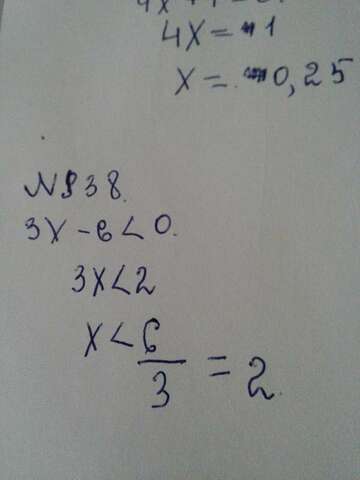 4X = -1
X = -0,25
N 938.
3X - 6 < 0.
3X < 2
X < 6/3 = 2.